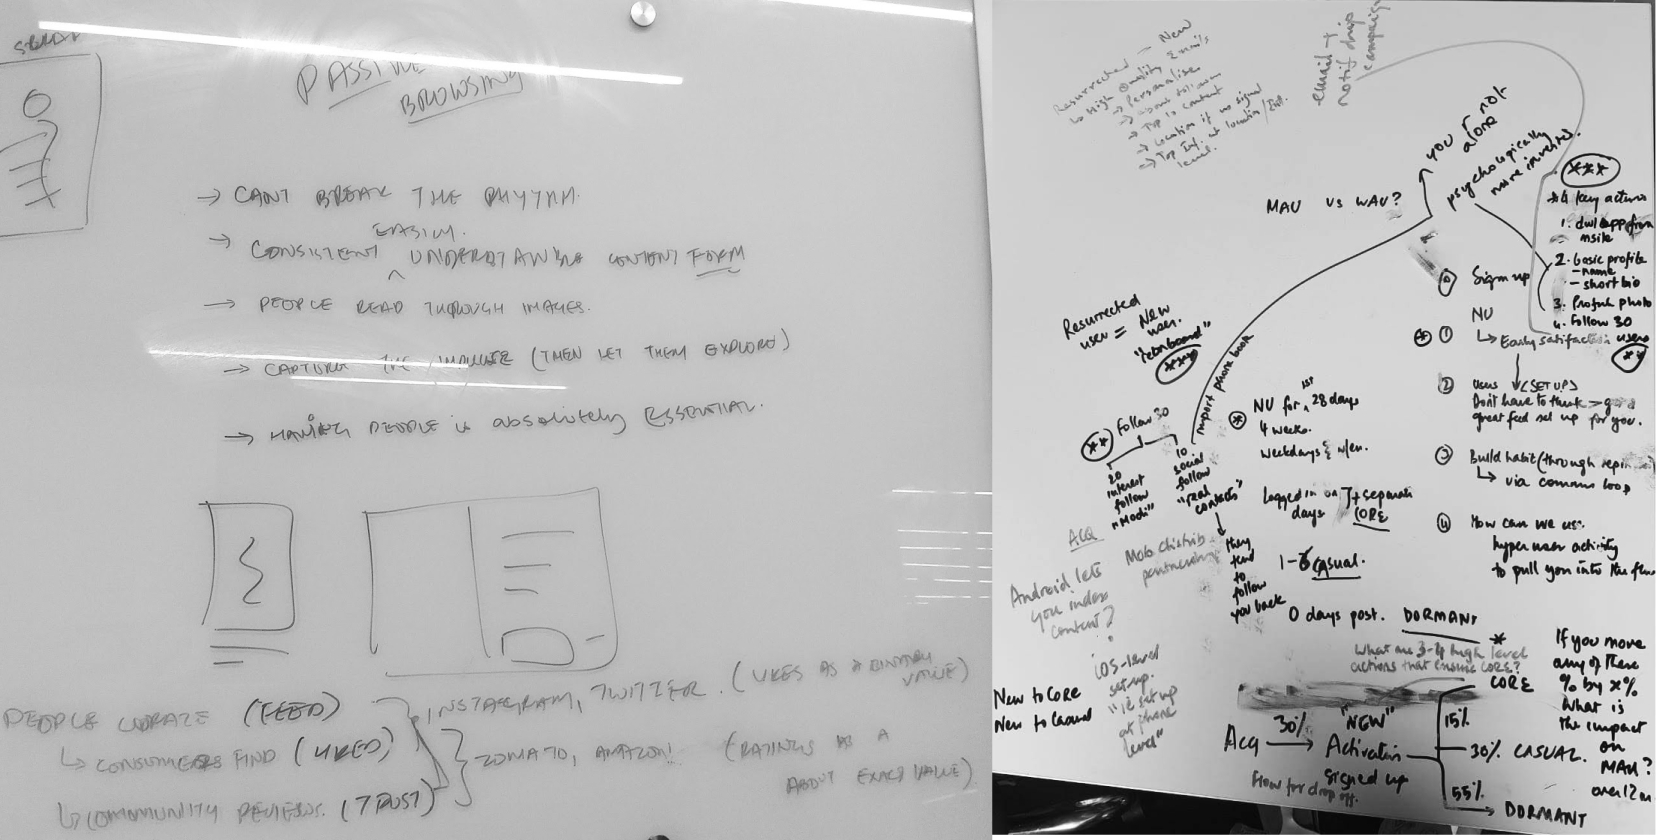 PASSIVE
BROWSING
→ CANT BREAK THE RHYTHM.
EASILY.
→ CONSISTENT ^ UNDERSTANDABLE CONTENT FORM
→ PEOPLE READ THROUGH IMAGES.
→ CAPTURE THE IMPULSE (THEN LET THEM EXPLORE)
→ HAVING PEOPLE is absolutely ESSENTIAL.
PEOPLE CURATE (FEED)
↳ CONSUMERS FIND (LIKED)
↳ COMMUNITY REVIEWS. (TRUST)
INSTAGRAM, TWITTER. (LIKES AS A BINARY
VALUE)
ZOMATO, AMAZON! (RATINGS AS A
ABOUT EXACT VALUE)
Resurrected - New
↳ High Quality Emails
→ Personalise
→ about follow
→ Top 10 content
→ Location if no signal
→ Top Inf. at location/Int.
level.
email +
notif drip
campaign
MAU vs WAU?
you r not
alone
psychologically
more invested.
***
*4 key actions
1. dwl app from
msite
2. basic profile
- name
- short bio
3. Profile photo
4. Follow 30
users
**
0 Sign up
* 1 NU
↳ Early satisfaction
2 Users (SET UP)
Don't have to think
great feed set up for you.
3 Build habit (through
↳ via comms loop
4 How can we use
hyper user activity
to pull you into the
Resurrected
user = New
user.
"reonboard"
***
import phone book
** Follow 30
20
interest
follow
"Modi"
10
social
follow
"real
contacts"
they
tend
to
follow
you back
* NU for 1st 28 days
4 weeks.
weekdays & w/en.
Logged in on 7+ separate
days CORE
1-6 Casual.
0 days post. DORMANT
ACQ
Moto distrib
partnership
Android lets
you index
content?
iOS-level
set-up.
"12 set up
at phone
level"
New to Core
New to Casual
What are 3-4 high level
actions that ensure CORE?
*
Acq 30% → "NEW"
Activation
signed up
Flow for drop off.
15% CORE
30% CASUAL.
55% → DORMANT
If you move
any of these
% by x%
what is
the impact
on
MAU?
over 12 m